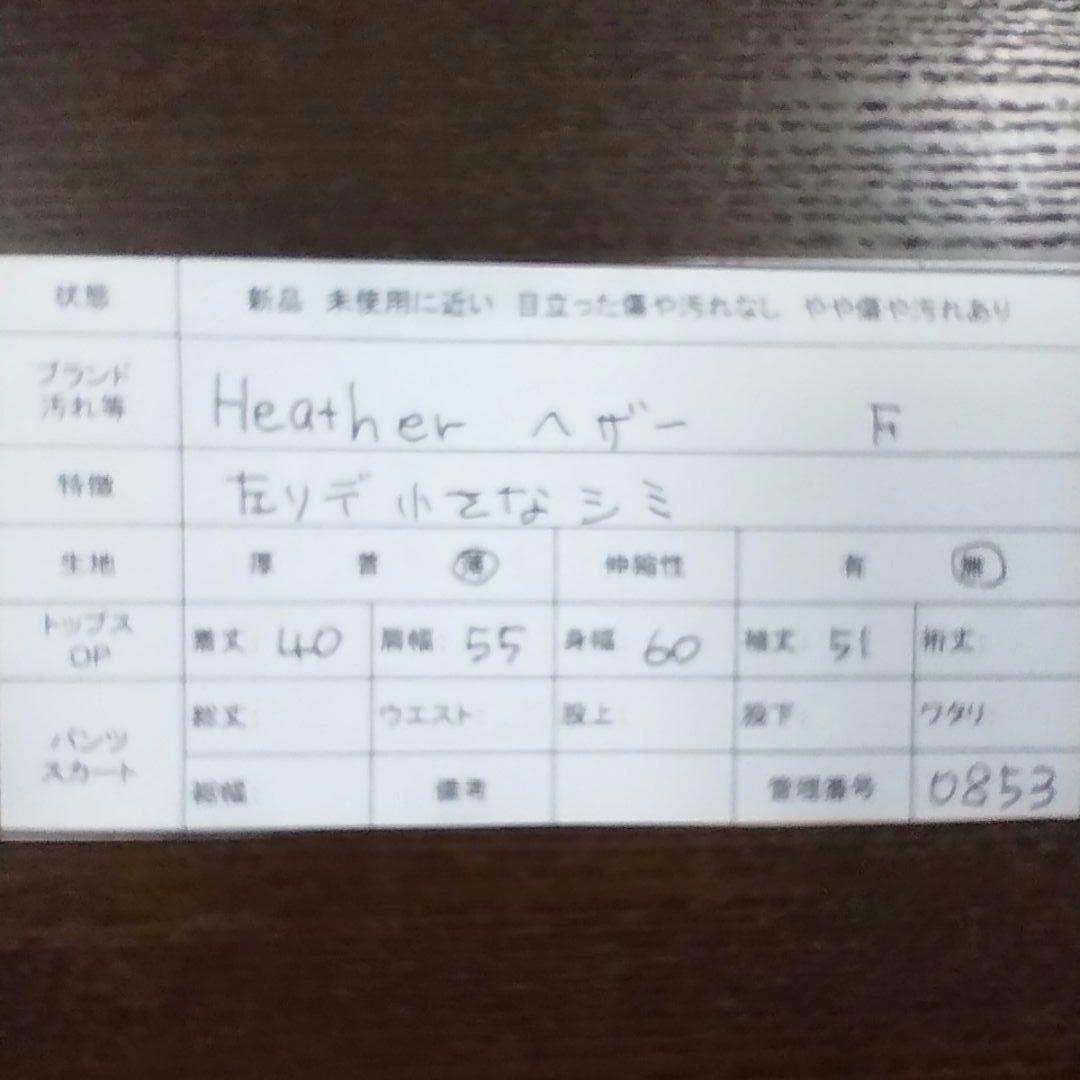 状態 新品 未使用に近い 目立った傷や汚れなし やや傷や汚れあり
ブランド
汚れ等
Heather ヘザー F
特徴 左ソデ 小さなシミ
生地 厚 普 薄 伸縮性 有 無
トップス
OP
着丈 40 肩幅 55 身幅 60 袖丈 51 裄丈
パンツ
スカート
総丈 ウエスト 股上 股下 ワタリ
裾幅 備考 管理番号 0853